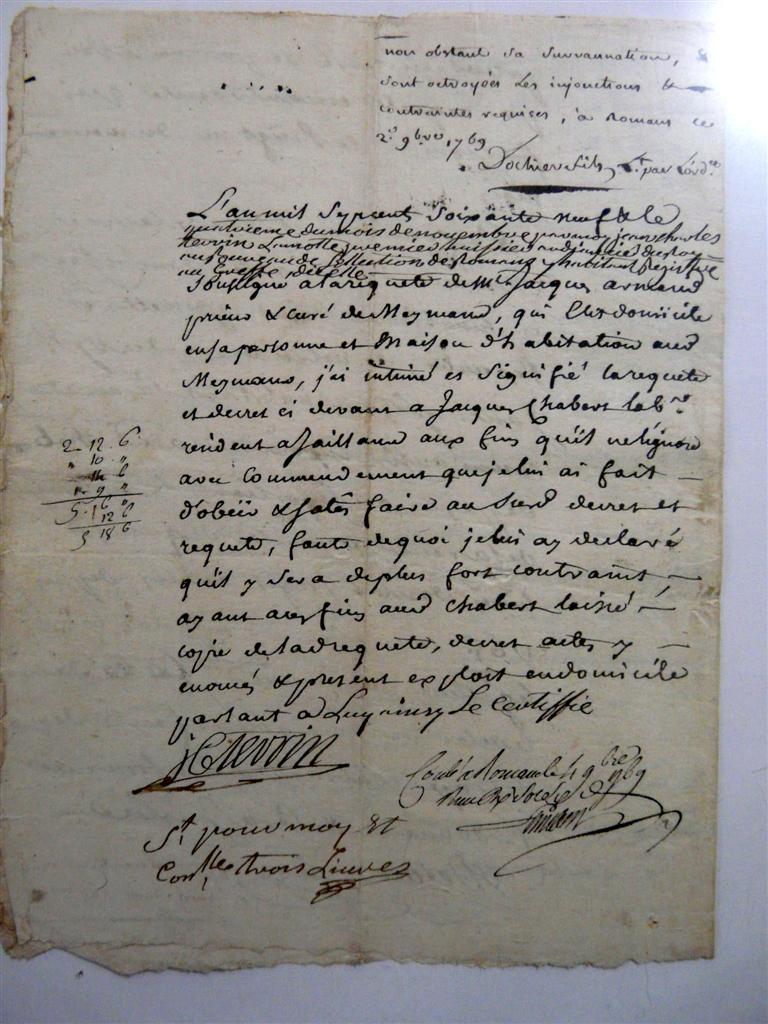 non obstant sa surrannation, &
sont octroyées les injonctions &
contraintes requises, à Romans ce
2e 9bre 1769
Dochier fils, Lt par l'ord.re
L'an mil sept cents soixante neuf & le
quatorzieme du mois de novembre par moy jean charles
Terrin Lamotte premier huissier audiancier du Roy
en l'election de Romans y habitant registré
au Greffe d'icelle
soussigné a la requete de Me Jacques armand
prieur & curé de Meymans, qui Elit domicile
en sa personne et Maison d'habitation aud
Meymans, j'ai intimé et signifié la requete
et decret ci devant a Jacques Chabert labr
resident a Jaillans aux fins qu'il n'elignore
avec Commendement que je lui ai fait
d'obeir & satisfaire au susd decret et
requete, faute de quoi je lui ay declaré
qu'il y sera de plus fort contraint
ayant aux fins aud chabert laissé
copie de lad requete, decret actes y
enoncés & present exploit en domicile
parlant a Luy ainsy Le Certiffie
jCterrin
2 12 6
" 10 "
" 14 6
1 9 "
5 1 6 "
12 6
5 18 6
Conlé a Romans le 9bre 1769
St pour moy Et
Conlle trois Livres